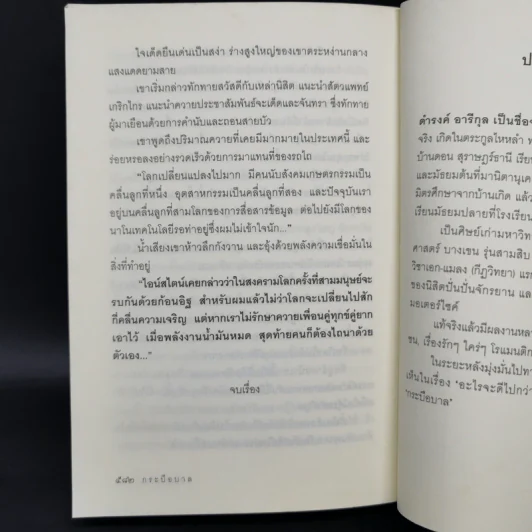 ใจเด็ดยืนเด่นเป็นสง่า ร่างสูงใหญ่ของเขาตระหง่านกลาง
แสงแดดยามสาย
เขาเริ่มกล่าวทักทายสวัสดีกับเหล่านิสิต แนะนำสัตวแพทย์
เกริกไกร แนะนำควายประชาสัมพันธ์จะเด็ดและจันทรา ซึ่งทักทาย
ผู้มาเยือนด้วยการคำนับและถอนสายบัว
เขาพูดถึงปริมาณควายที่เคยมีมากมายในประเทศนี้ และ
ร่อยหรอลงอย่างรวดเร็วด้วยการมาแทนที่ของรถไถ
"โลกเปลี่ยนแปลงไปมาก มีคนนับสังคมเกษตรกรรมเป็น
คลื่นลูกที่หนึ่ง อุตสาหกรรมเป็นคลื่นลูกที่สอง และปัจจุบันเรา
อยู่บนคลื่นลูกที่สามโลกของการสื่อสารข้อมูล ต่อไปยังมีโลกของ
นาโนเทคโนโลยีรอท่าอยู่ซึ่งผมไม่เข้าใจนัก..."
น้ำเสียงเขาห้าวลึกกังวาน และอุ้งด้วยพลังความเชื่อมั่นใน
สิ่งที่ทำอยู่
"ไอน์สไตน์เคยกล่าวว่าในสงครามโลกครั้งที่สามมนุษย์จะ
รบกันด้วยก้อนอิฐ สำหรับผมแล้วไม่ว่าโลกจะเปลี่ยนไปสัก
กี่คลื่นความเจริญ แต่หากเราไม่รักษาควายเพื่อนคู่ทุกข์คู่ยาก
เอาไว้ เมื่อพลังงานน้ำมันหมด สุดท้ายคนก็ต้องไถนาด้วย
ตัวเอง..."
จบเรื่อง
๕๘๒ กระบือบาล
ป
ดำรงค์ อารีกุล เป็นชื่อจ
จริง เกิดในตระกูลไหหลำ
บ้านดอน สุราษฎร์ธานี เรียน
และมัธยมต้นที่มานิตานุเค
มิตรศึกษาจากบ้านเกิด แล้ว
เรียนมัธยมปลายที่โรงเรียน
เป็นศิษย์เก่ามหาวิท
ศาสตร์ บางเขน รุ่นสามสิบ
วิชาเอก-แมลง (กีฏวิทยา) แร
ของนิสิตปั่นปั่นจักรยาน และ
มอเตอร์ไซค์
แท้จริงแล้วมีผลงานหลา
ชน, เรื่องรักๆ ใคร่ๆ โรแมนติก
ในระยะหลังมุ่งมั่นไปทา
เห็นในเรื่อง 'อะไรจะดีไปกว่า
'กระบือบาล'